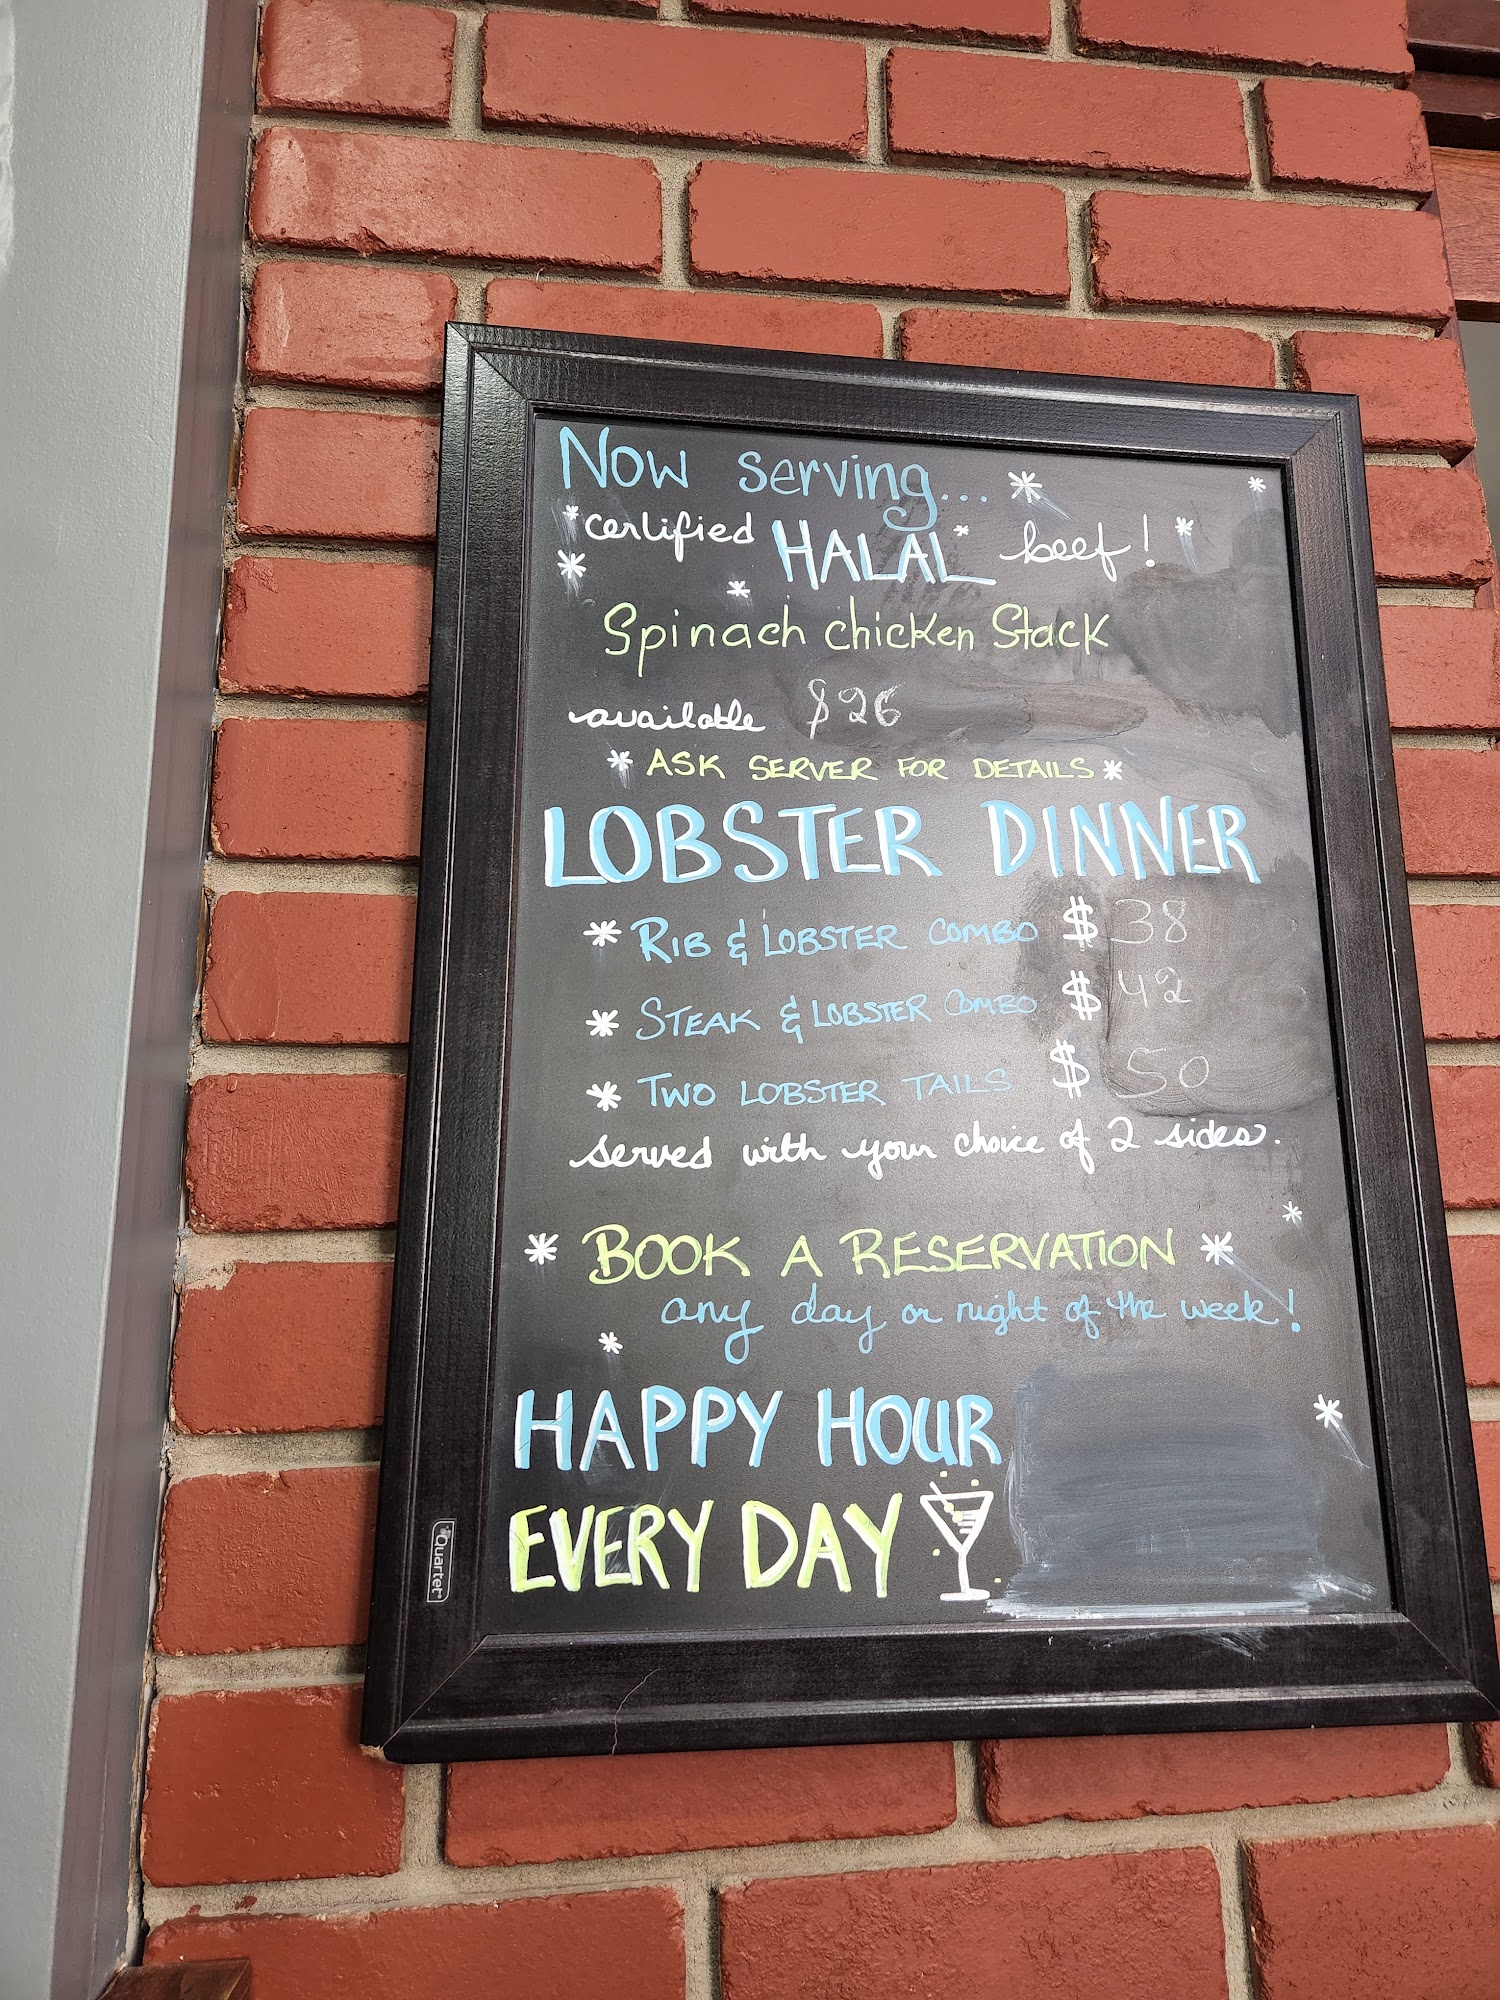 Now serving...
certified HALAL beef!
Spinach chicken Stack
available $26
ASK SERVER FOR DETAILS
LOBSTER DINNER
RIB & LOBSTER COMBO $38
STEAK & LOBSTER COMBO $42
TWO LOBSTER TAILS $50
served with your choice of 2 sides.
BOOK A RESERVATION
any day or night of the week!
HAPPY HOUR
EVERY DAY
Quartet